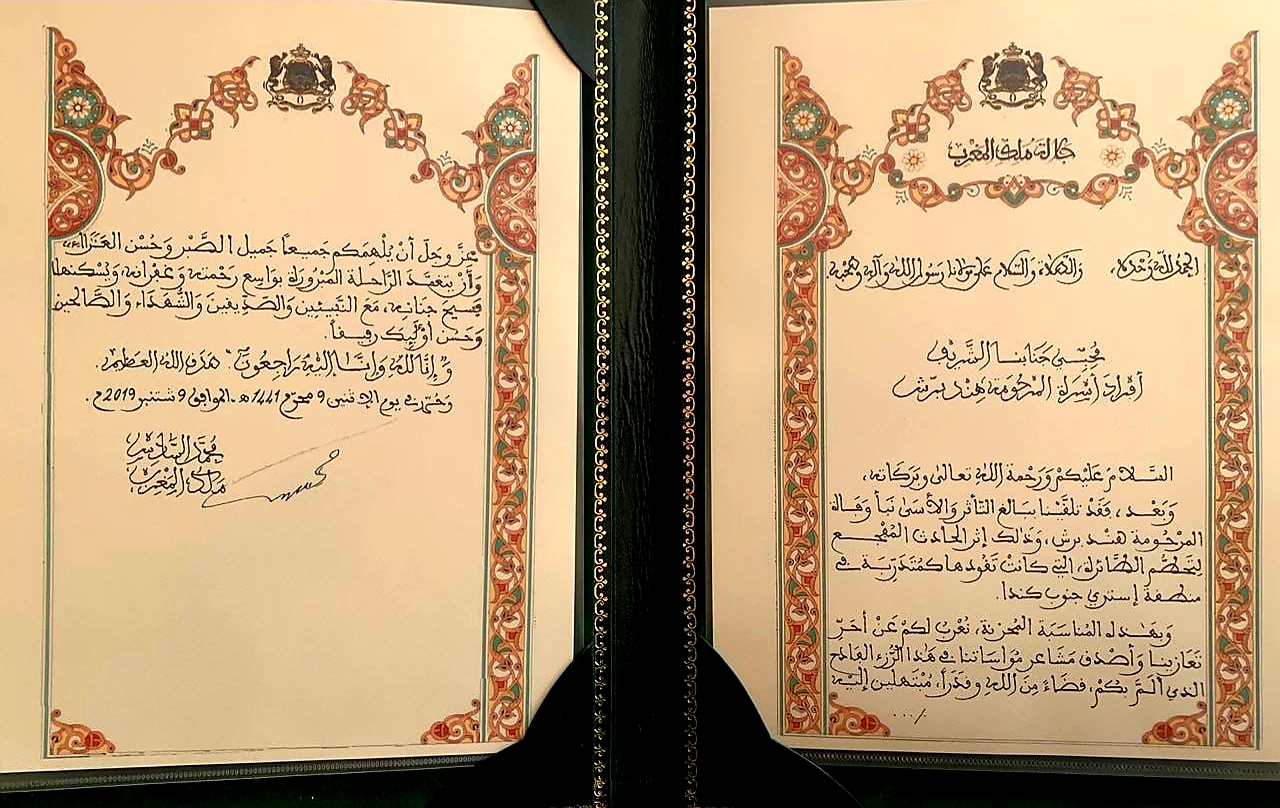 جلالة ملك المغرب
الحمد لله وحده، والصلاة والسلام على مولانا رسول الله وآله وصحبه
محبي جنابنا الشريف
أفراد أسرة المرحومة هند برش
السلام عليكم ورحمة الله تعالى وبركاته،
وبعد، فقد تلقينا ببالغ التأثر والأسى نبأ وفاة
المرحومة هند برش، وذلك إثر الحادث المفجع
لتحطم الطائرة، التي كانت تقودها كمتدربة في
منطقة إستري جنوب كندا.
وبهذه المناسبة المحزنة، نعرب لكم عن أحر
تعازينا وأصدق مشاعر مواساتنا في هذا الرزء الفادح
الذي ألم بكم، قضاء من الله وقدرا، مبتهلين إليه
.../.
عَزَّ وجَلَّ أنْ يُلْهِمَكم جَميعاً جَميل الصَّبْر وَحُسْن العَزَاء،
وَأَنْ يتغمَّدَ الرَّاحلة المَبْرُورَة بوَاسِع رَحْمته وَغفرانه، ويُسْكنها
فسيح جنانه، مَعَ النَّبيئين وَالصّدِّيقين وَالشُّهَدَاء وَالصَّالحين
وَحَسن أوْلَئِكَ رفيقاً.
"وَإنَّا لله وَإنَّا إليْه رَاجعُونَ". صَدق الله العظيم.
وحُرر في يوم الإثنين 9 محرم 1441هـ، الموافق 9 شتنبر 2019م.
محمد السادس
ملك المغرب